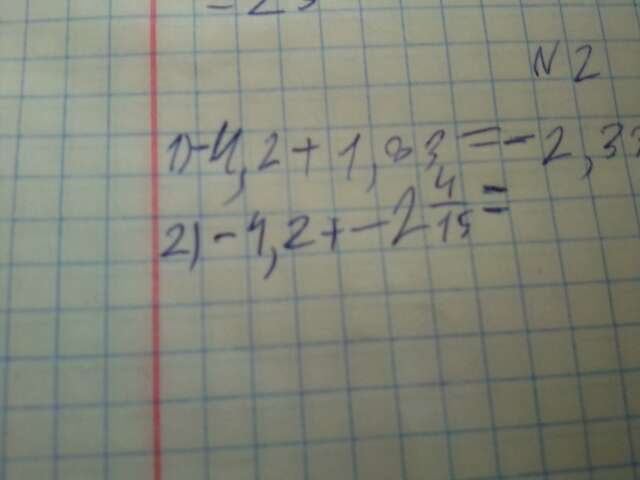 № 2
1) -4,2 + 1,83 = -2,3
2) -4,2 + -2 4/15 =